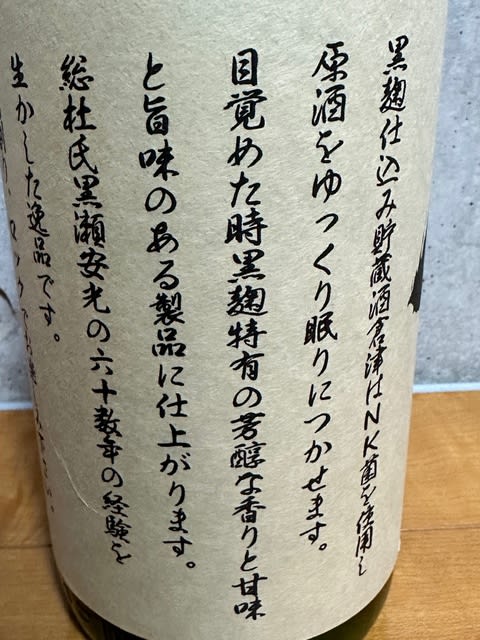 黒麹仕込み貯蔵酒倉津はNK菌を使用し
原酒をゆっくり眠りにつかせます。
目覚めた時黒麹特有の芳醇な香りと甘味
と旨味のある製品に仕上がります。
総杜氏黒瀬安光の六十数年の経験を
生かした逸品です。